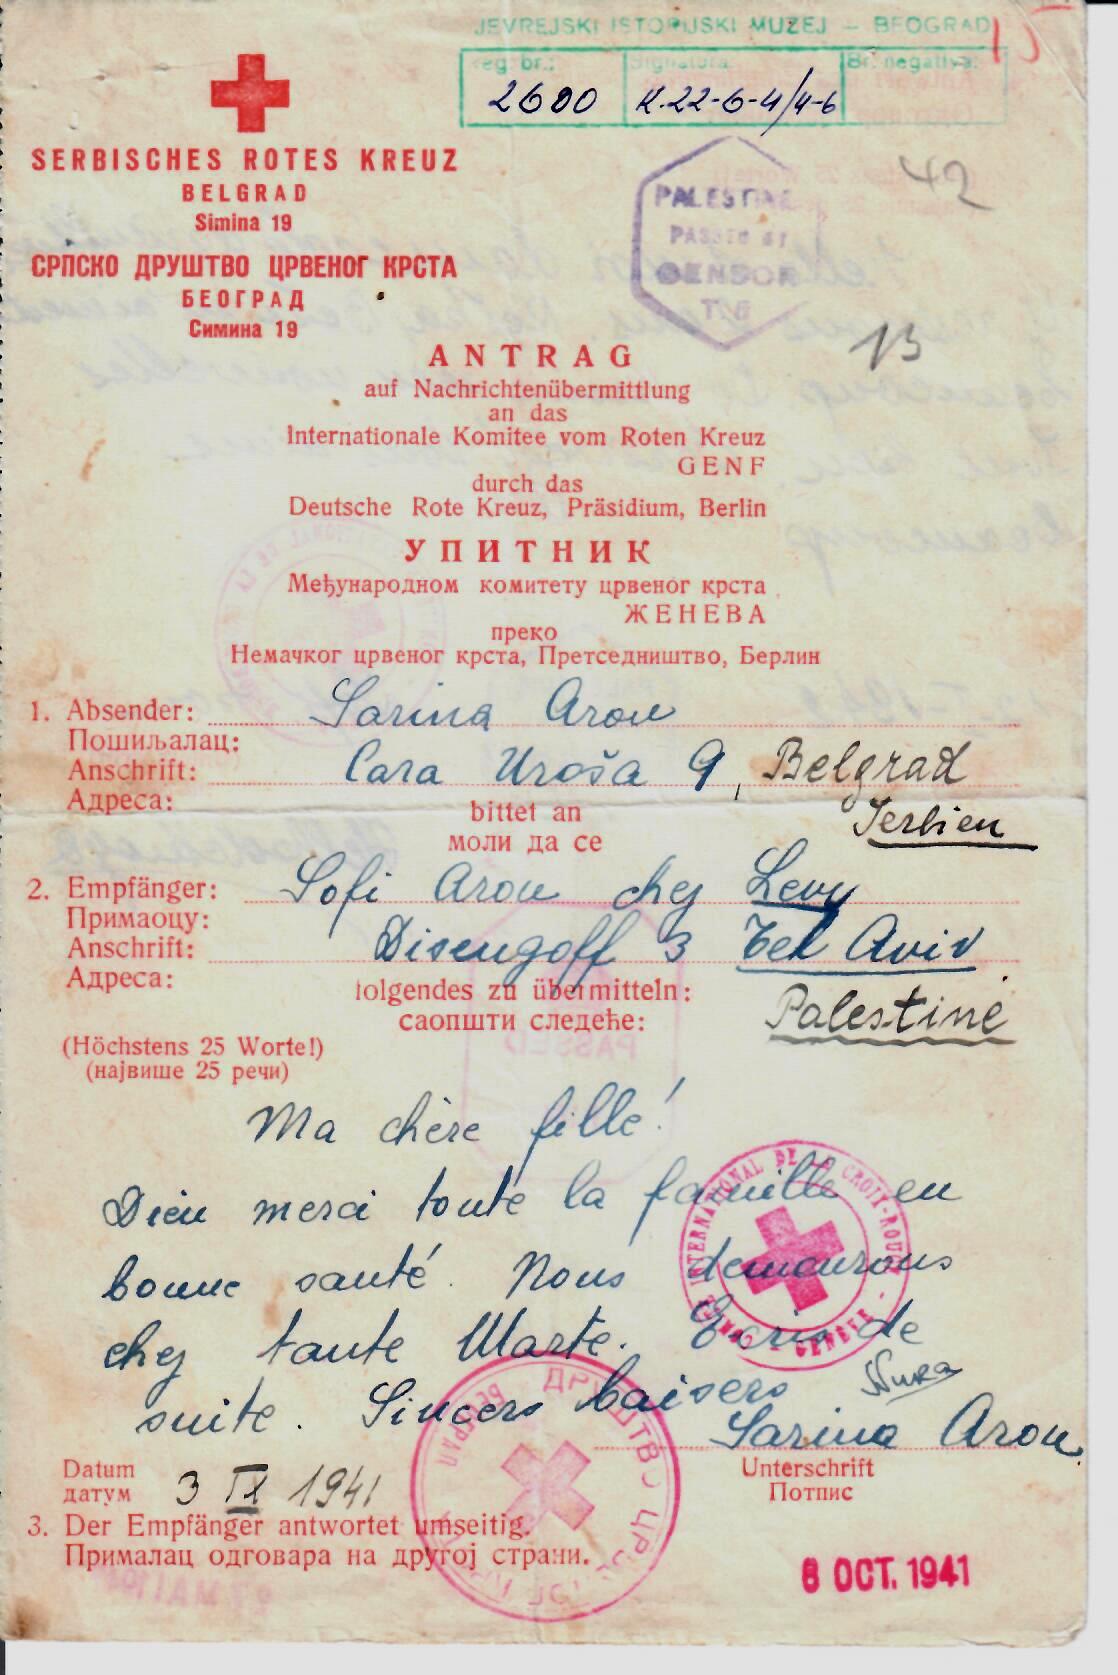 JEVREJSKI ISTORIJSKI MUZEJ — BEOGRAD
Reg. br.: Signatura Br. negativa:
2600 K.22-6-4/4-6
SERBISCHES ROTES KREUZ
BELGRAD
Simina 19
СРПСКО ДРУШТВО ЦРВЕНОГ КРСТА
БЕОГРАД
Симина 19
PALESTINE
PASSED BY
CENSOR
42
13
ANTRAG
auf Nachrichtenübermittlung
an das
Internationale Komitee vom Roten Kreuz
GENF
durch das
Deutsche Rote Kreuz, Präsidium, Berlin
УПИТНИК
Међународном комитету црвеног крста
ЖЕНЕВА
преко
Немачког црвеног крста, Претседништво, Берлин
1. Absender: Sarina Aron
Пошиљалац:
Anschrift: Cara Uroša 9, Belgrad
Адреса:
Serbien
bittet an
моли да се
2. Empfänger: Sofi Aron chej Levy
Примаоцу:
Anschrift: Disengoff 3 Tel Aviv
Адреса:
folgendes zu übermitteln:
Palestine
саопшти следеће:
(Höchstens 25 Worte!)
(највише 25 речи)
Ma chère fille!
Dieu merci toute la famille en
bonne santé. Nous demourons
chej tante Marte. Ecris de
suite. Sincers baisers Nuka
Sarina Aron
Unterschrift
Потпис
Datum
датум 3 IX 1941
3. Der Empfänger antwortet umseitig.
Прималац одговара на другој страни.
COMITÉ INTERNATIONAL DE LA CROIX-ROUGE - GENÈVE -
8 OCT. 1941